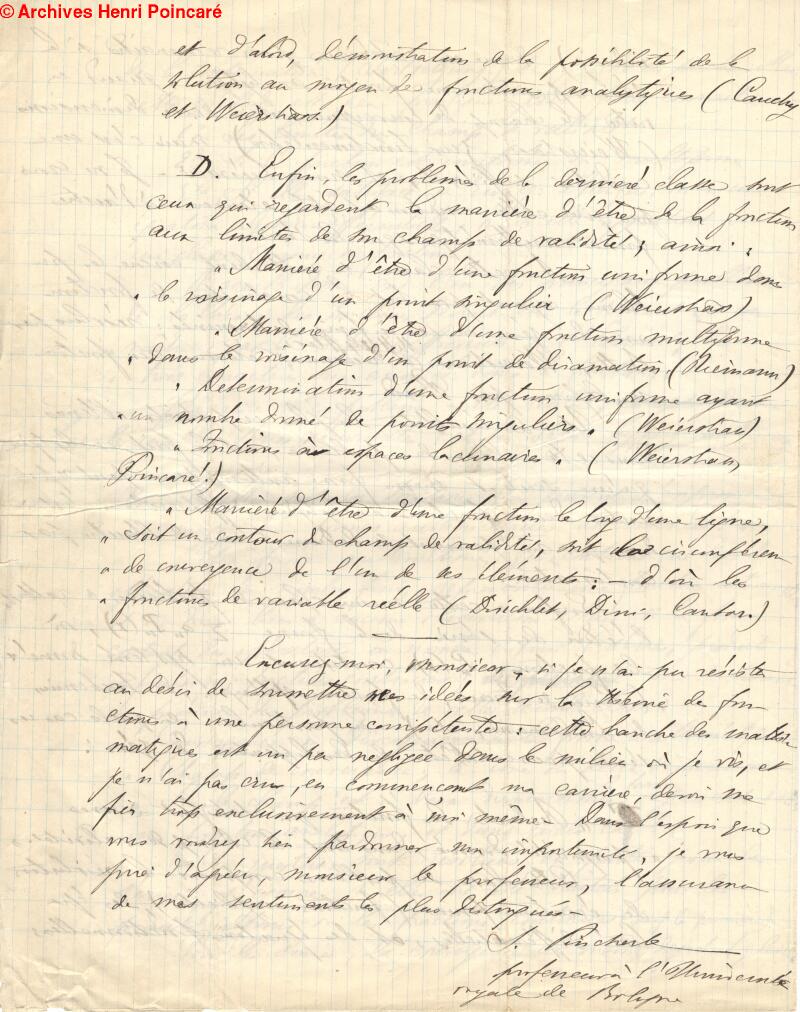 © Archives Henri Poincaré
et d'abord, démonstration de la possibilité de la
solution au moyen de fonctions analytiques (Cauchy
et Weierstrass)
D. Enfin, les problèmes de la dernière classe sont
ceux qui regardent la manière d'être de la fonction
aux limites de son champ de validité; ainsi:
" Manière d'être d'une fonction uniforme dans
" le voisinage d'un point singulier (Weierstrass)
" Manière d'être d'une fonction multiforme
" dans le voisinage d'un point de diramation. (Riemann)
" Détermination d'une fonction uniforme ayant
" un nombre donné de points singuliers. (Weierstrass)
" Fonctions à espaces lacunaires. (Weierstrass,
Poincaré.)
" Manière d'être d'une fonction le long d'une ligne,
" soit un contour du champ de validité, soit circonféren
" de convergence de l'un de ses éléments: – d'où les
" fonctions de variable réelle (Dirichlet, Dini, Cantor.)
Excusez moi, monsieur, si je n'ai pu résister
au désir de soumettre mes idées sur la théorie des fon-
ctions à une personne compétente: cette branche des mathé-
matiques est un peu negligée dans le milieu où je vis, et
je n'ai pas cru, en commençant ma carrière, devoir me
fier trop exclusivement à moi même – Dans l'espoir que
vous voudrez bien pardonner mon importunité, je vous
prie d'agréer, monsieur le professeur, l'assurance
de mes sentiments les plus distingués –
S. Pincherle
professeur à l'Université
royale de Bologne